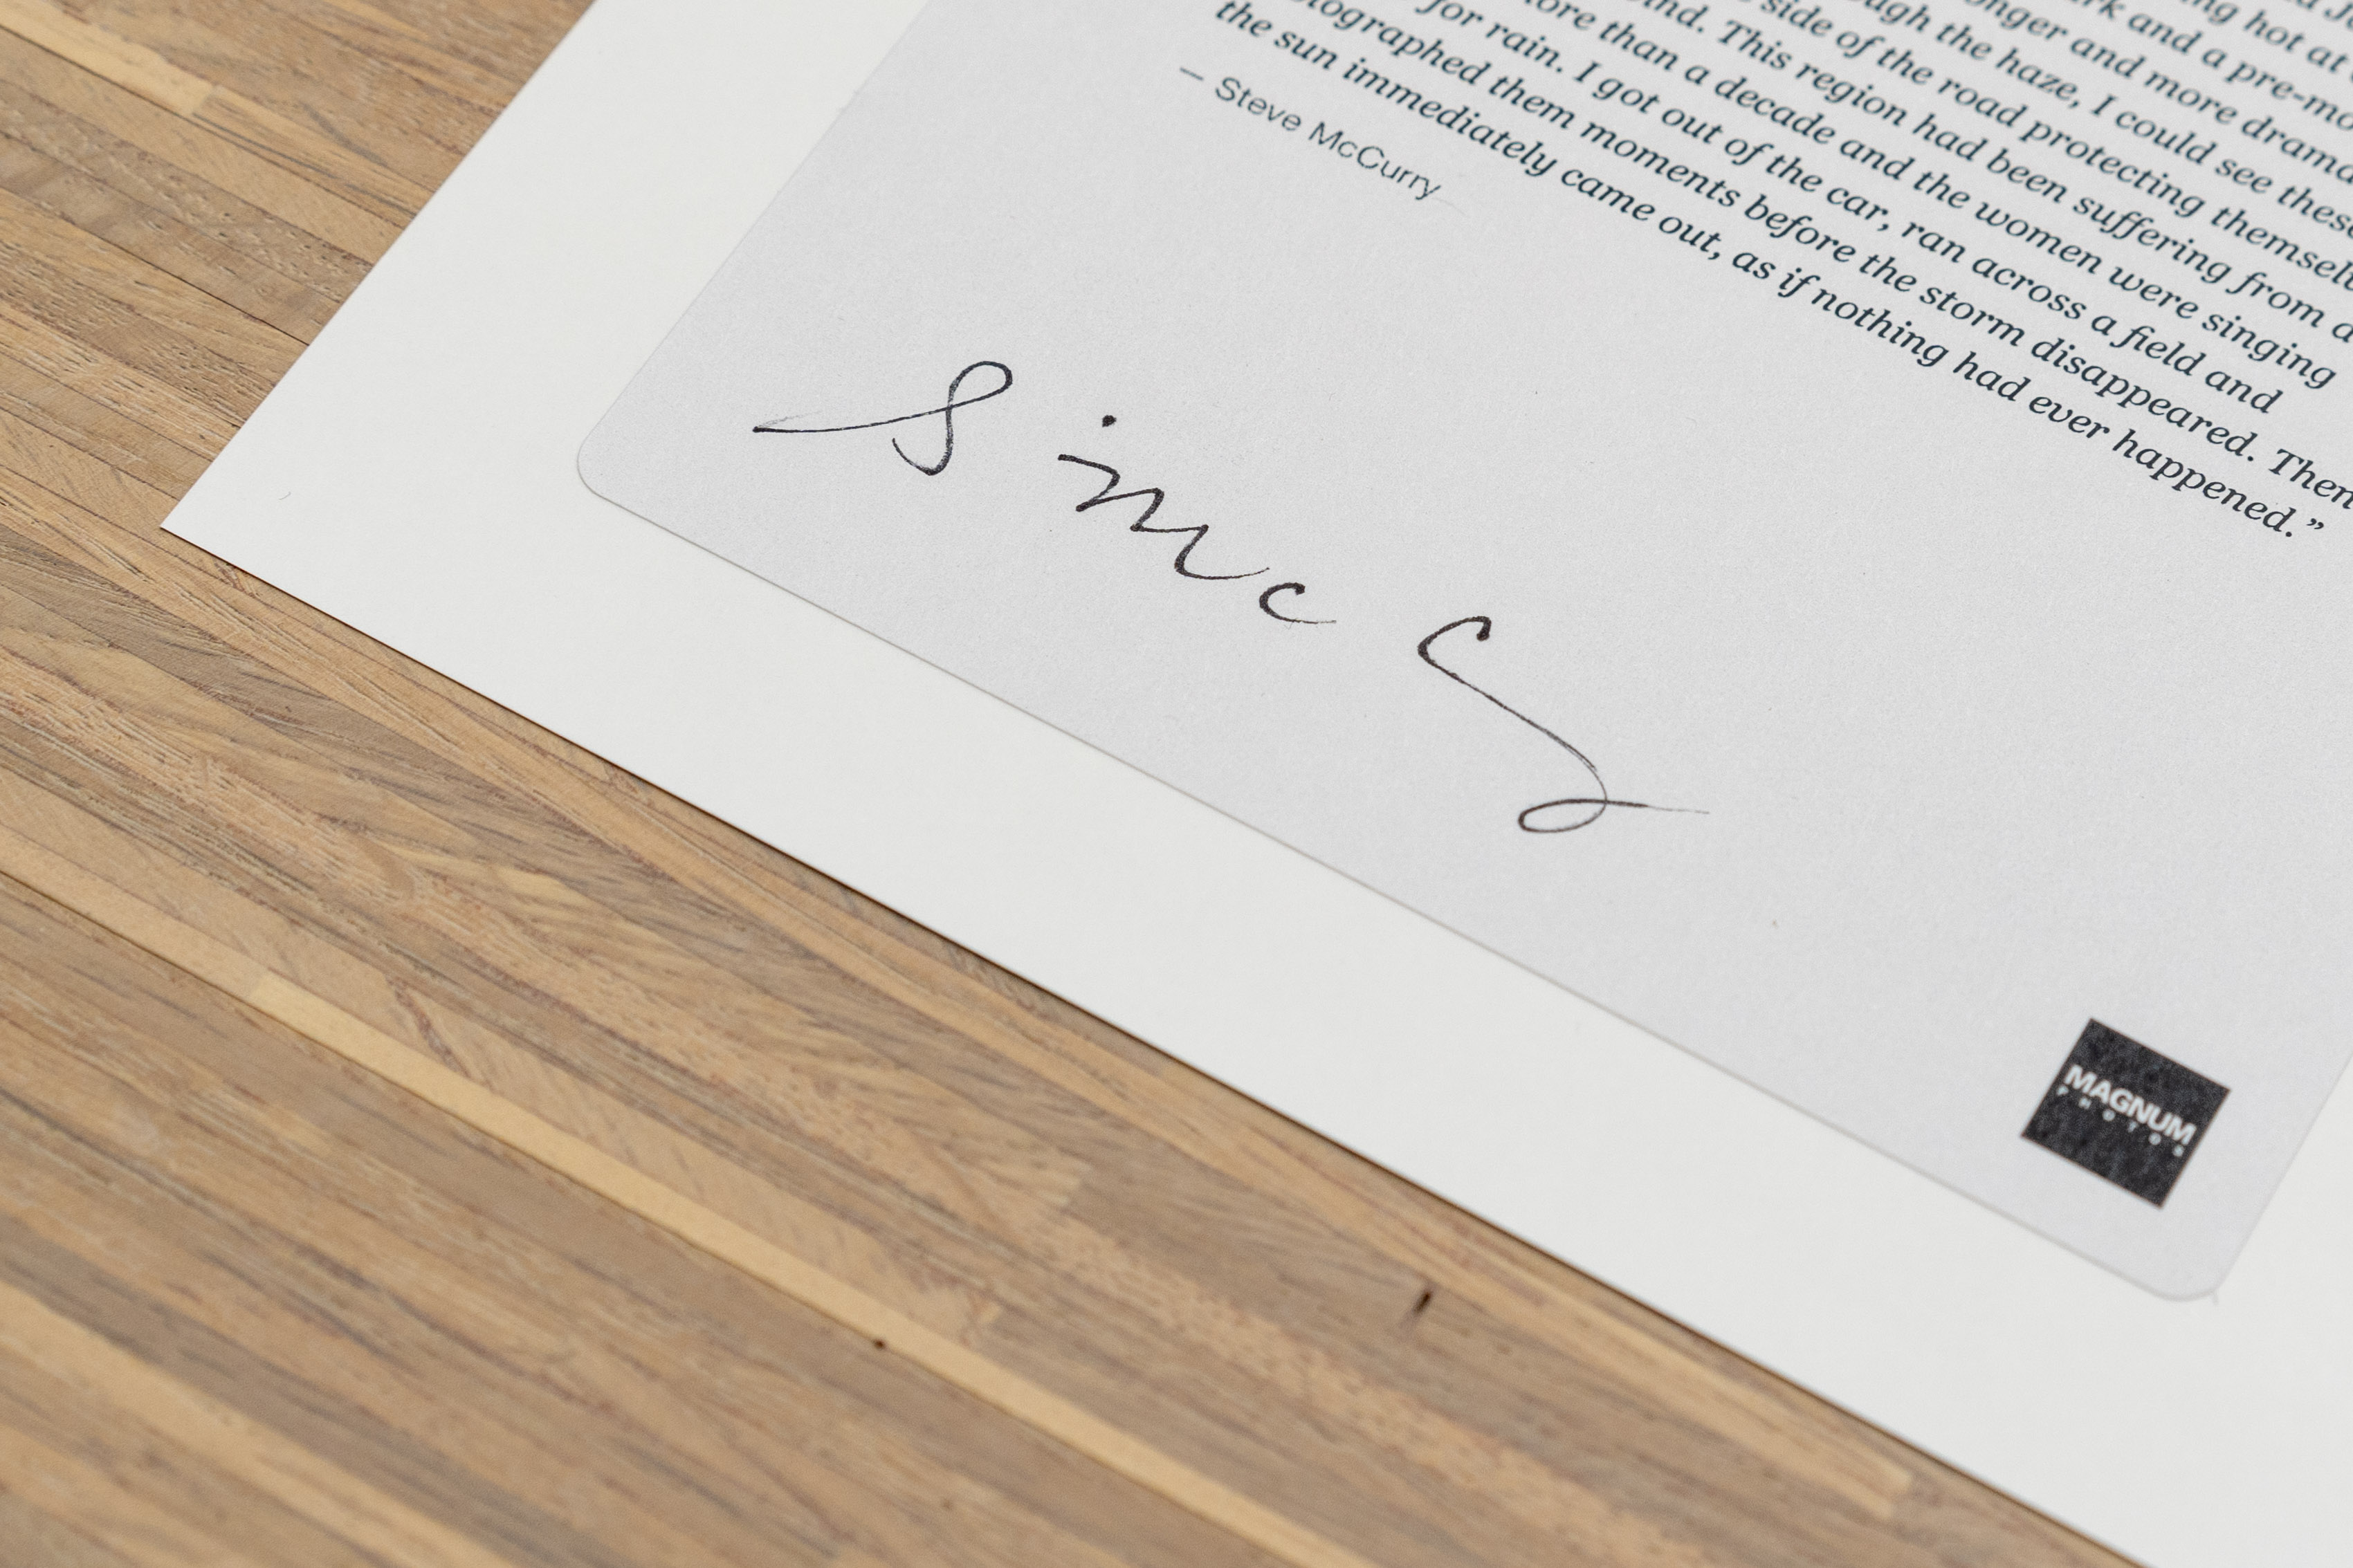 ing hot at
rk and a pre-mo
onger and more drama
ugh the haze, I could see these
side of the road protecting themselv
ind. This region had been suffering from a
ore than a decade and the women were singing
for rain. I got out of the car, ran across a field and
tographed them moments before the storm disappeared. Then
the sun immediately came out, as if nothing had ever happened.”
— Steve McCurry
MAGNUM
PHOTOS